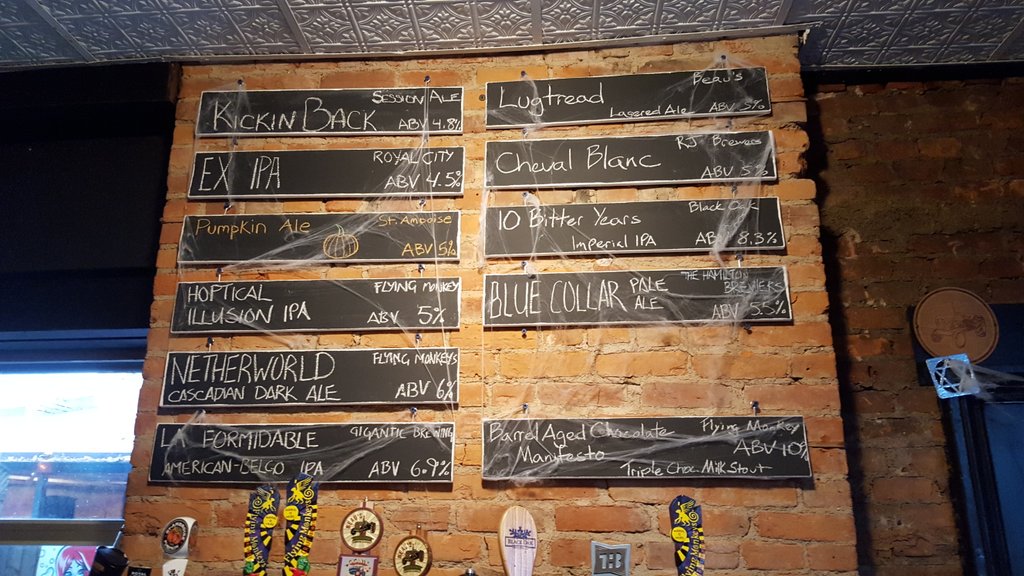 SESSION ALE
KICKIN BACK
ABV 4.8%
ROYAL CITY
EX IPA
ABV 4.5%
Pumpkin Ale
St. Amboise
ABV 5%
HOPTICAL
FLYING MONKEY
ILLUSION IPA
ABV 5%
NETHERWORLD
FLYING MONKEYS
CASCADIAN DARK ALE
ABV 6%
FORMIDABLE
GIGANTIC BREWING
AMERICAN-BELGO IPA
ABV 6.9%
Beau's
Lugtread
Lagered Ale
ABV 5%
RJ Brewers
Cheval Blanc
ABV 5%
10 Bitter Years
Black Oak
Imperial IPA
ABV 8.3%
BLUE COLLAR PALE ALE
THE HAMILTON BREWERS
ABV 5.5%
Barrel Aged Chocolate
Flying Monkey
Manifesto
ABV 10%
Triple Choc. Milk Stout
BLACK OAK